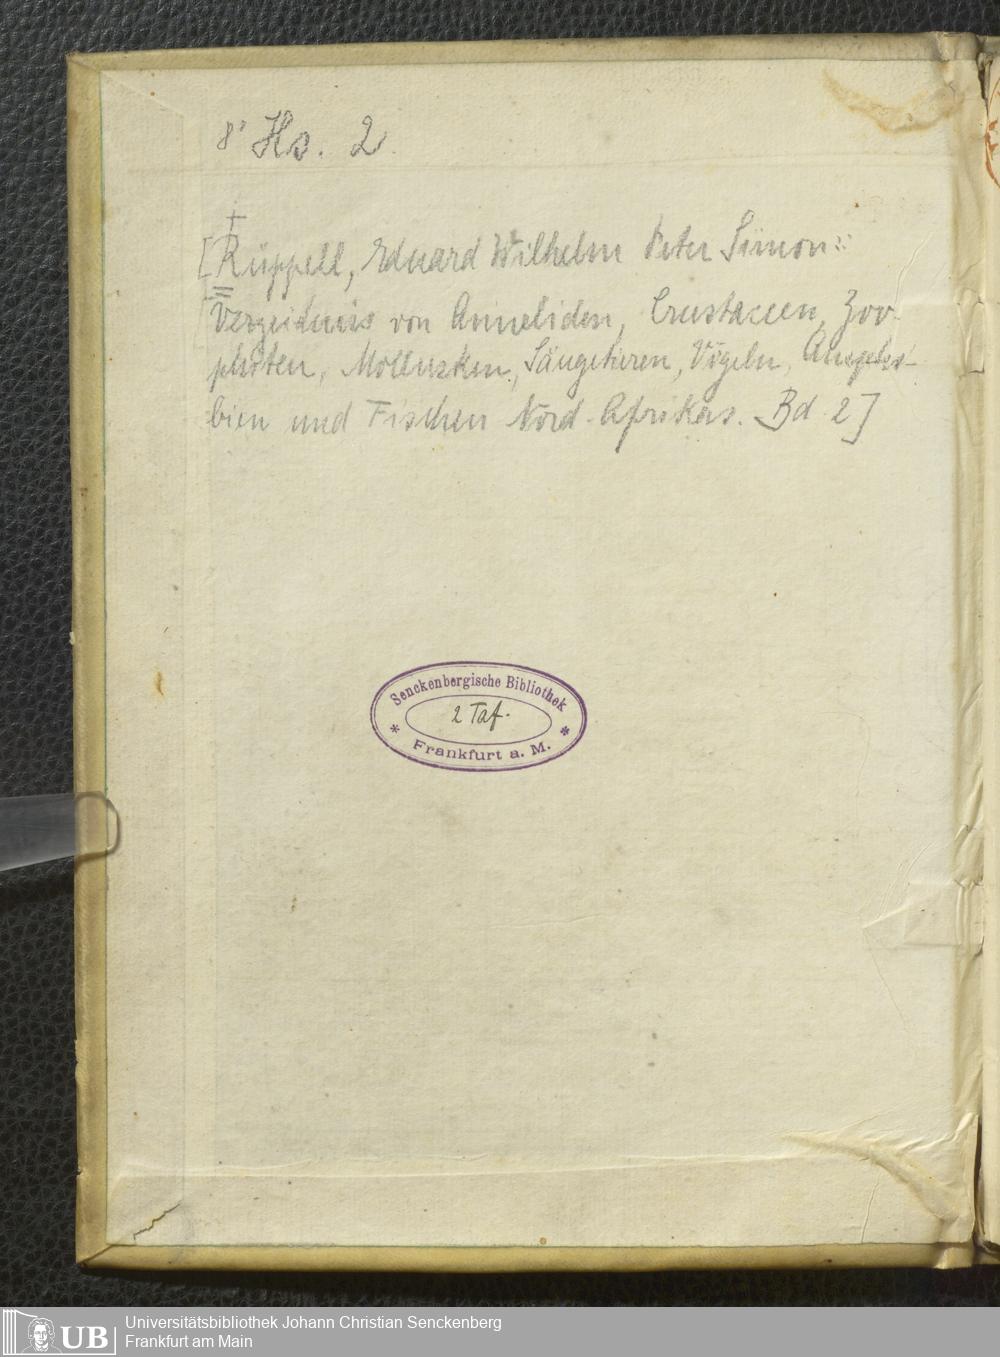 8° Hs. 2
[Rüppell, Eduard Wilhelm Peter Simon:
Verzeichnis von Anneliden, Crustaceen, Zoo-
phyten, Mollusken, Säugetieren, Vögeln, Amphi-
bien und Fischen Nord-Afrikas. Bd 2]
Senckenbergische Bibliothek
2 Taf.
* Frankfurt a. M. *
UB
Universitätsbibliothek Johann Christian Senckenberg
Frankfurt am Main